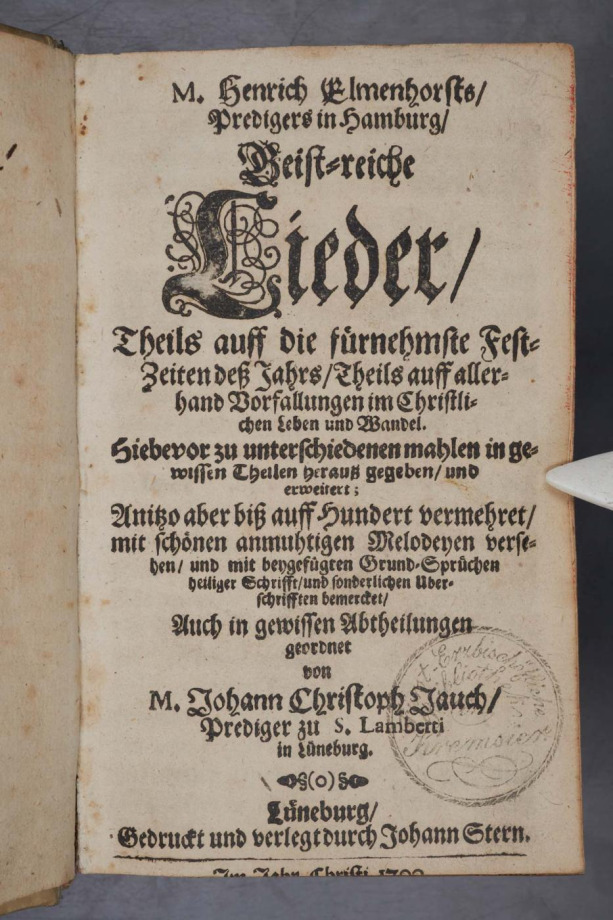 M. Henrich Elmenhorsts/
Predigers in Hamburg/
Geist-reiche
Lieder/
Theils auff die fürnehmste Fest-
Zeiten deß Jahrs/Theils auff aller-
hand Vorfallungen im Christli-
chen Leben und Wandel.
Hiebevor zu unterschiedenen mahlen in ge-
wissen Theilen herauß gegeben/und
erweitert;
Anitzo aber biß auff Hundert vermehret/
mit schönen anmuhtigen Melodeyen verse-
hen/ und mit beygefügten Grund-Sprüchen
heiliger Schrifft/und sonderlichen Uber-
schrifften bemercket/
Auch in gewissen Abtheilungen
geordnet
von
M. Johann Christoph Jauch/
Prediger zu S. Lamberti
in Lüneburg.
§(o)§
Lüneburg/
Gedruckt und verlegt durch Johann Stern.
Im Jahr Christi